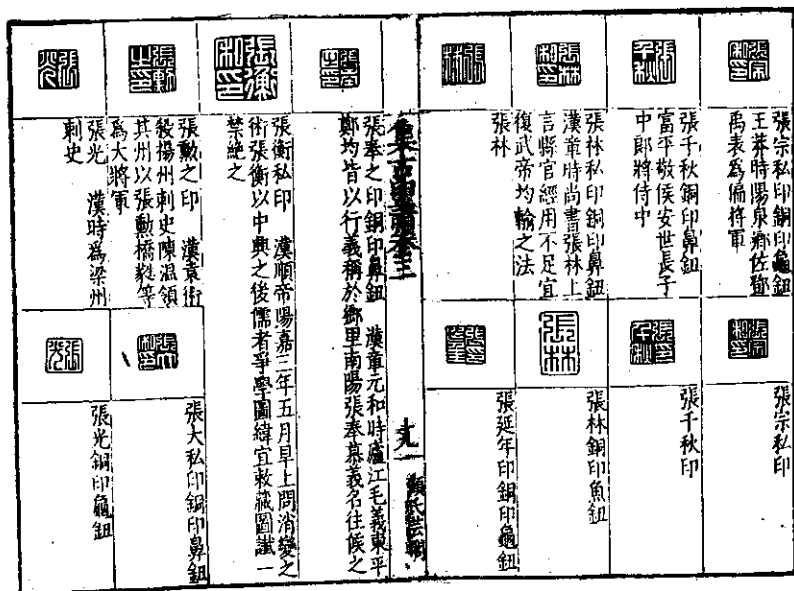 張宗私印銅印龜鈕
王莽時陽泉鄉佐鄧
禹表爲偏將軍
張千秋銅印鼻鈕
富平敬侯安世長子
中郎將侍中
張林私印銅印鼻鈕
漢章時尚書張林上
言縣官經用不足宜
復武帝均輸之法
張林
張宗私印
張千秋印
張林
張林銅印魚鈕
張延年印銅印龜鈕
集古印譜卷三
十九
顧氏芸閣
張奉之印銅印鼻鈕 漢章元和時廬江毛義東平
鄭均皆以行義稱於鄉里南陽張奉慕義名往候之
張衡私印
張衡私印 漢順帝陽嘉三年五月旱上問消變之
術張衡以中興之後儒者爭學圖緯宜敕藏圖讖一
禁絶之
張勳之印
張勳之印 漢袁術
殺揚州刺史陳溫領
其州以張勳橋蕤等
爲大將軍
張光
張光 漢時爲梁州
刺史
張大私印銅印鼻鈕
張光
張光銅印龜鈕